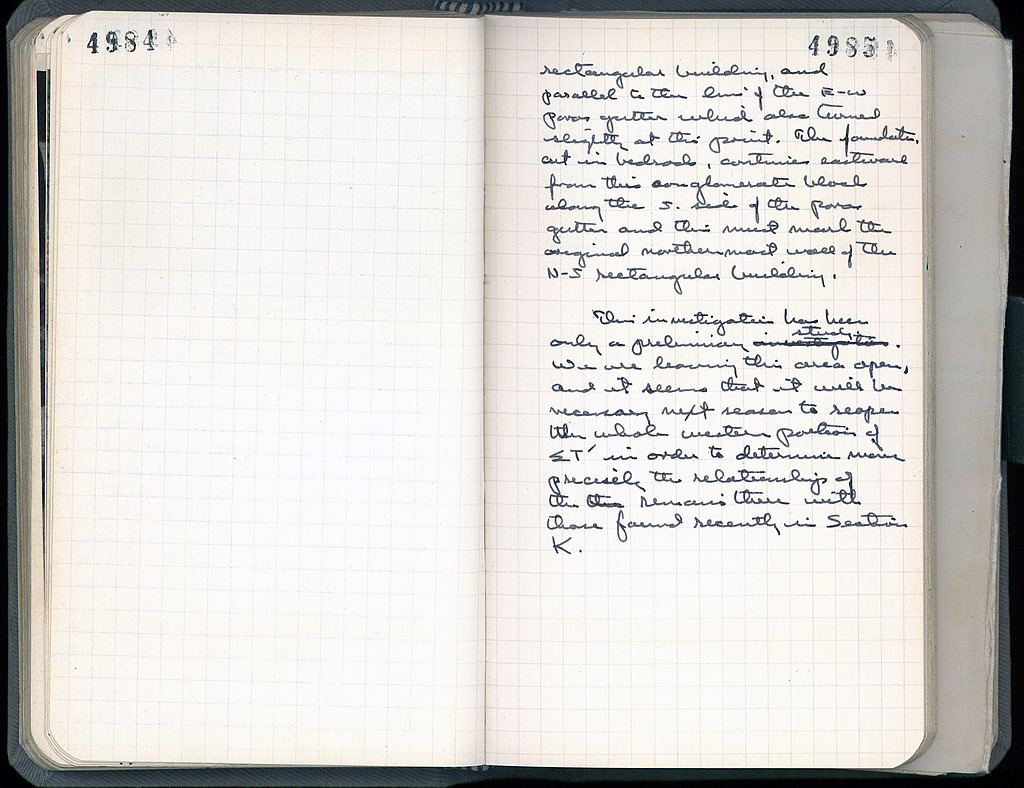 4984
4985
rectangular building, and
parallel to the line of the E-W
poros gutter which also turned
slightly at this point. The foundation,
cut in bedrock, continues eastward
from this conglomerate block
along the S. side of the poros
gutter and this must mark the
original northernmost wall of the
N-S rectangular building.
This investigation has been
only a preliminary investigation study.
We are leaving this area open,
and it seems that it will be
necessary next season to reopen
the whole western portion of
ΣΤ' in order to determine more
precisely the relationships of
the remains there with
those found recently in Section
K.